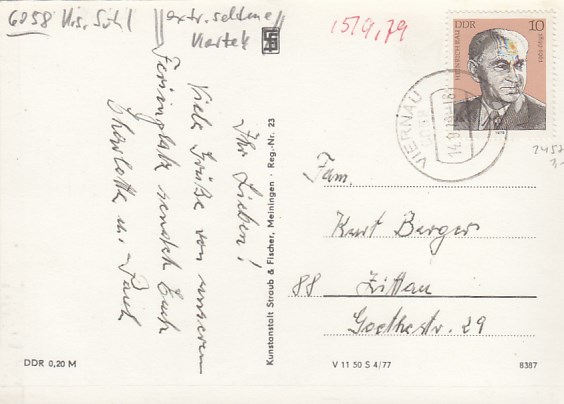 6058 Krs. Suhl
extr. seltene
Karte
15/9,79
DDR 10
HEINRICH RAU 1899-1961
VIERNAU
14.9.79
2457
Ihr Lieben!
Viele Grüße von unserem
Ferienplatz sendet Euch
Charlotte u. Paul
Kunstanstalt Straub & Fischer, Meiningen · Reg.-Nr. 23
Fam.
Kurt Berger
88 Zittau
Goethestr. 29
DDR 0,20 M
V 11 50 S 4/77
8387